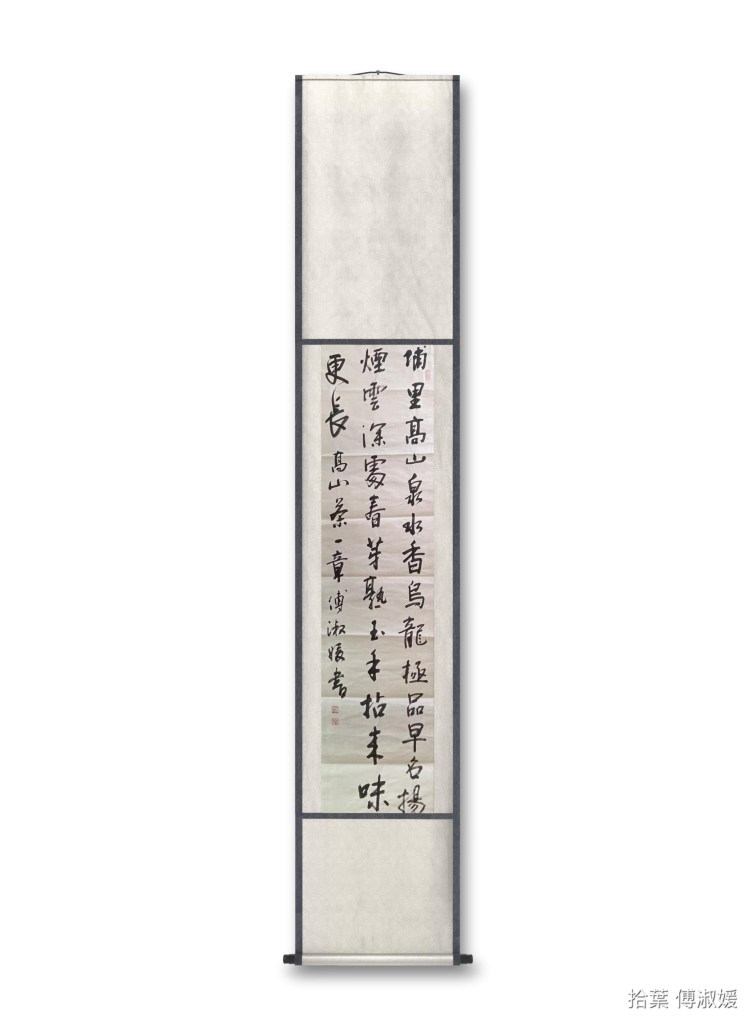 埔里高山泉水香烏龍極品早名揚
煙雲深處春芽熟玉手拈來味
更長 高山茶一章 傅淑媛書
拾葉 傅淑媛